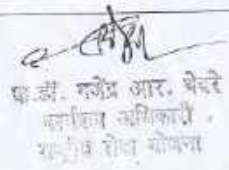 प्रा.डॉ. गजेंद्र आर.
कार्यक्रम अधिकारी
राष्ट्रीय सेवा योजना